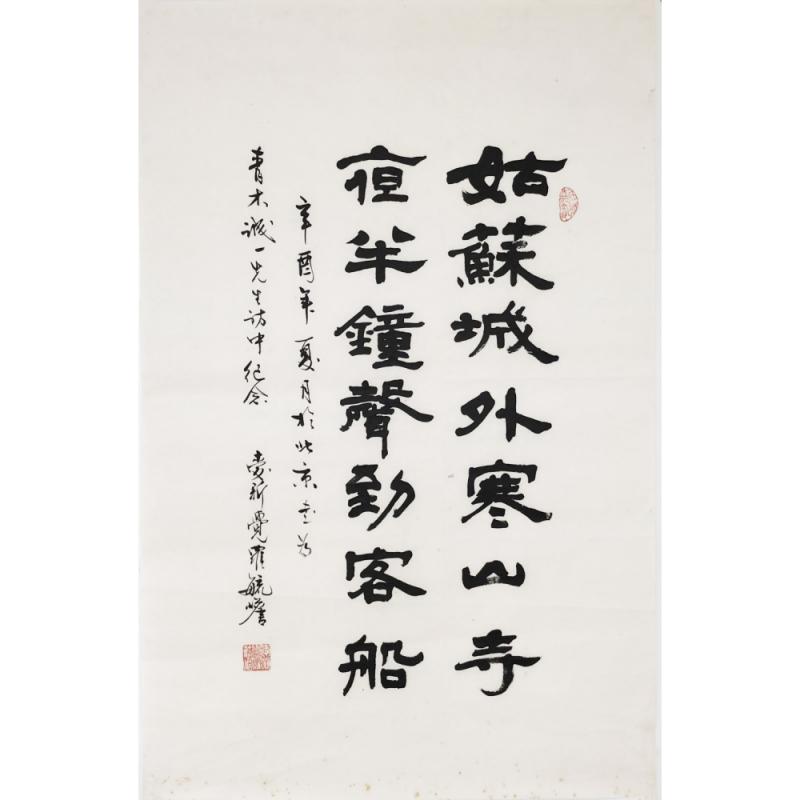 姑蘇城外寒山寺
夜半鐘聲到客船
辛酉年夏月於北京書為
青木誠一先生訪中紀念 愛新覺羅毓嶦